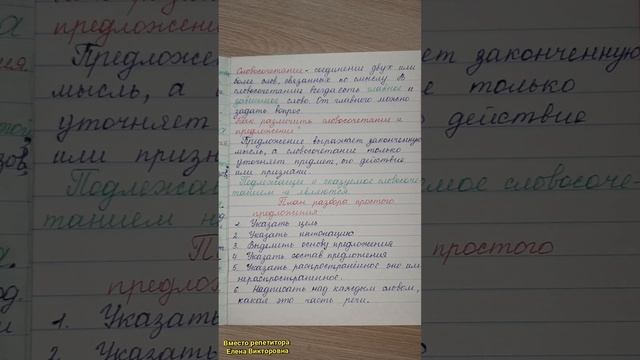 Словосочетание - соединение двух или
более слов, связанных по смыслу. В
словосочетании всегда есть главное и
зависимое слово. От главного можно
задать вопрос.
Как различить словосочетание и
предложение?
Предложение выражает законченную
мысль, а словосочетание только
уточняет предмет, его действие
или признаки.
Подлежащее и сказуемое словосоче-
танием не являются
План разбора простого
предложения
1. Указать цель
2. Указать интонацию
3. Выделить основу предложения
4. Указать состав предложения
5. Указать распространённое оно или
нераспространённое.
6. Надписать над каждым словом,
какая это часть речи.
Вместо репетитора
Елена Викторовна